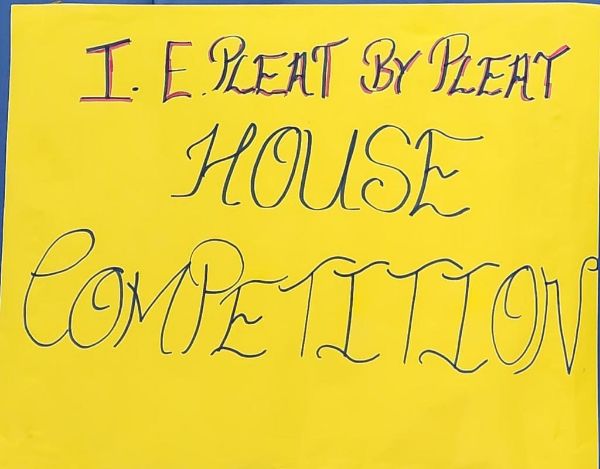 I. E. PLEAT BY PLEAT
HOUSE
COMPETITION